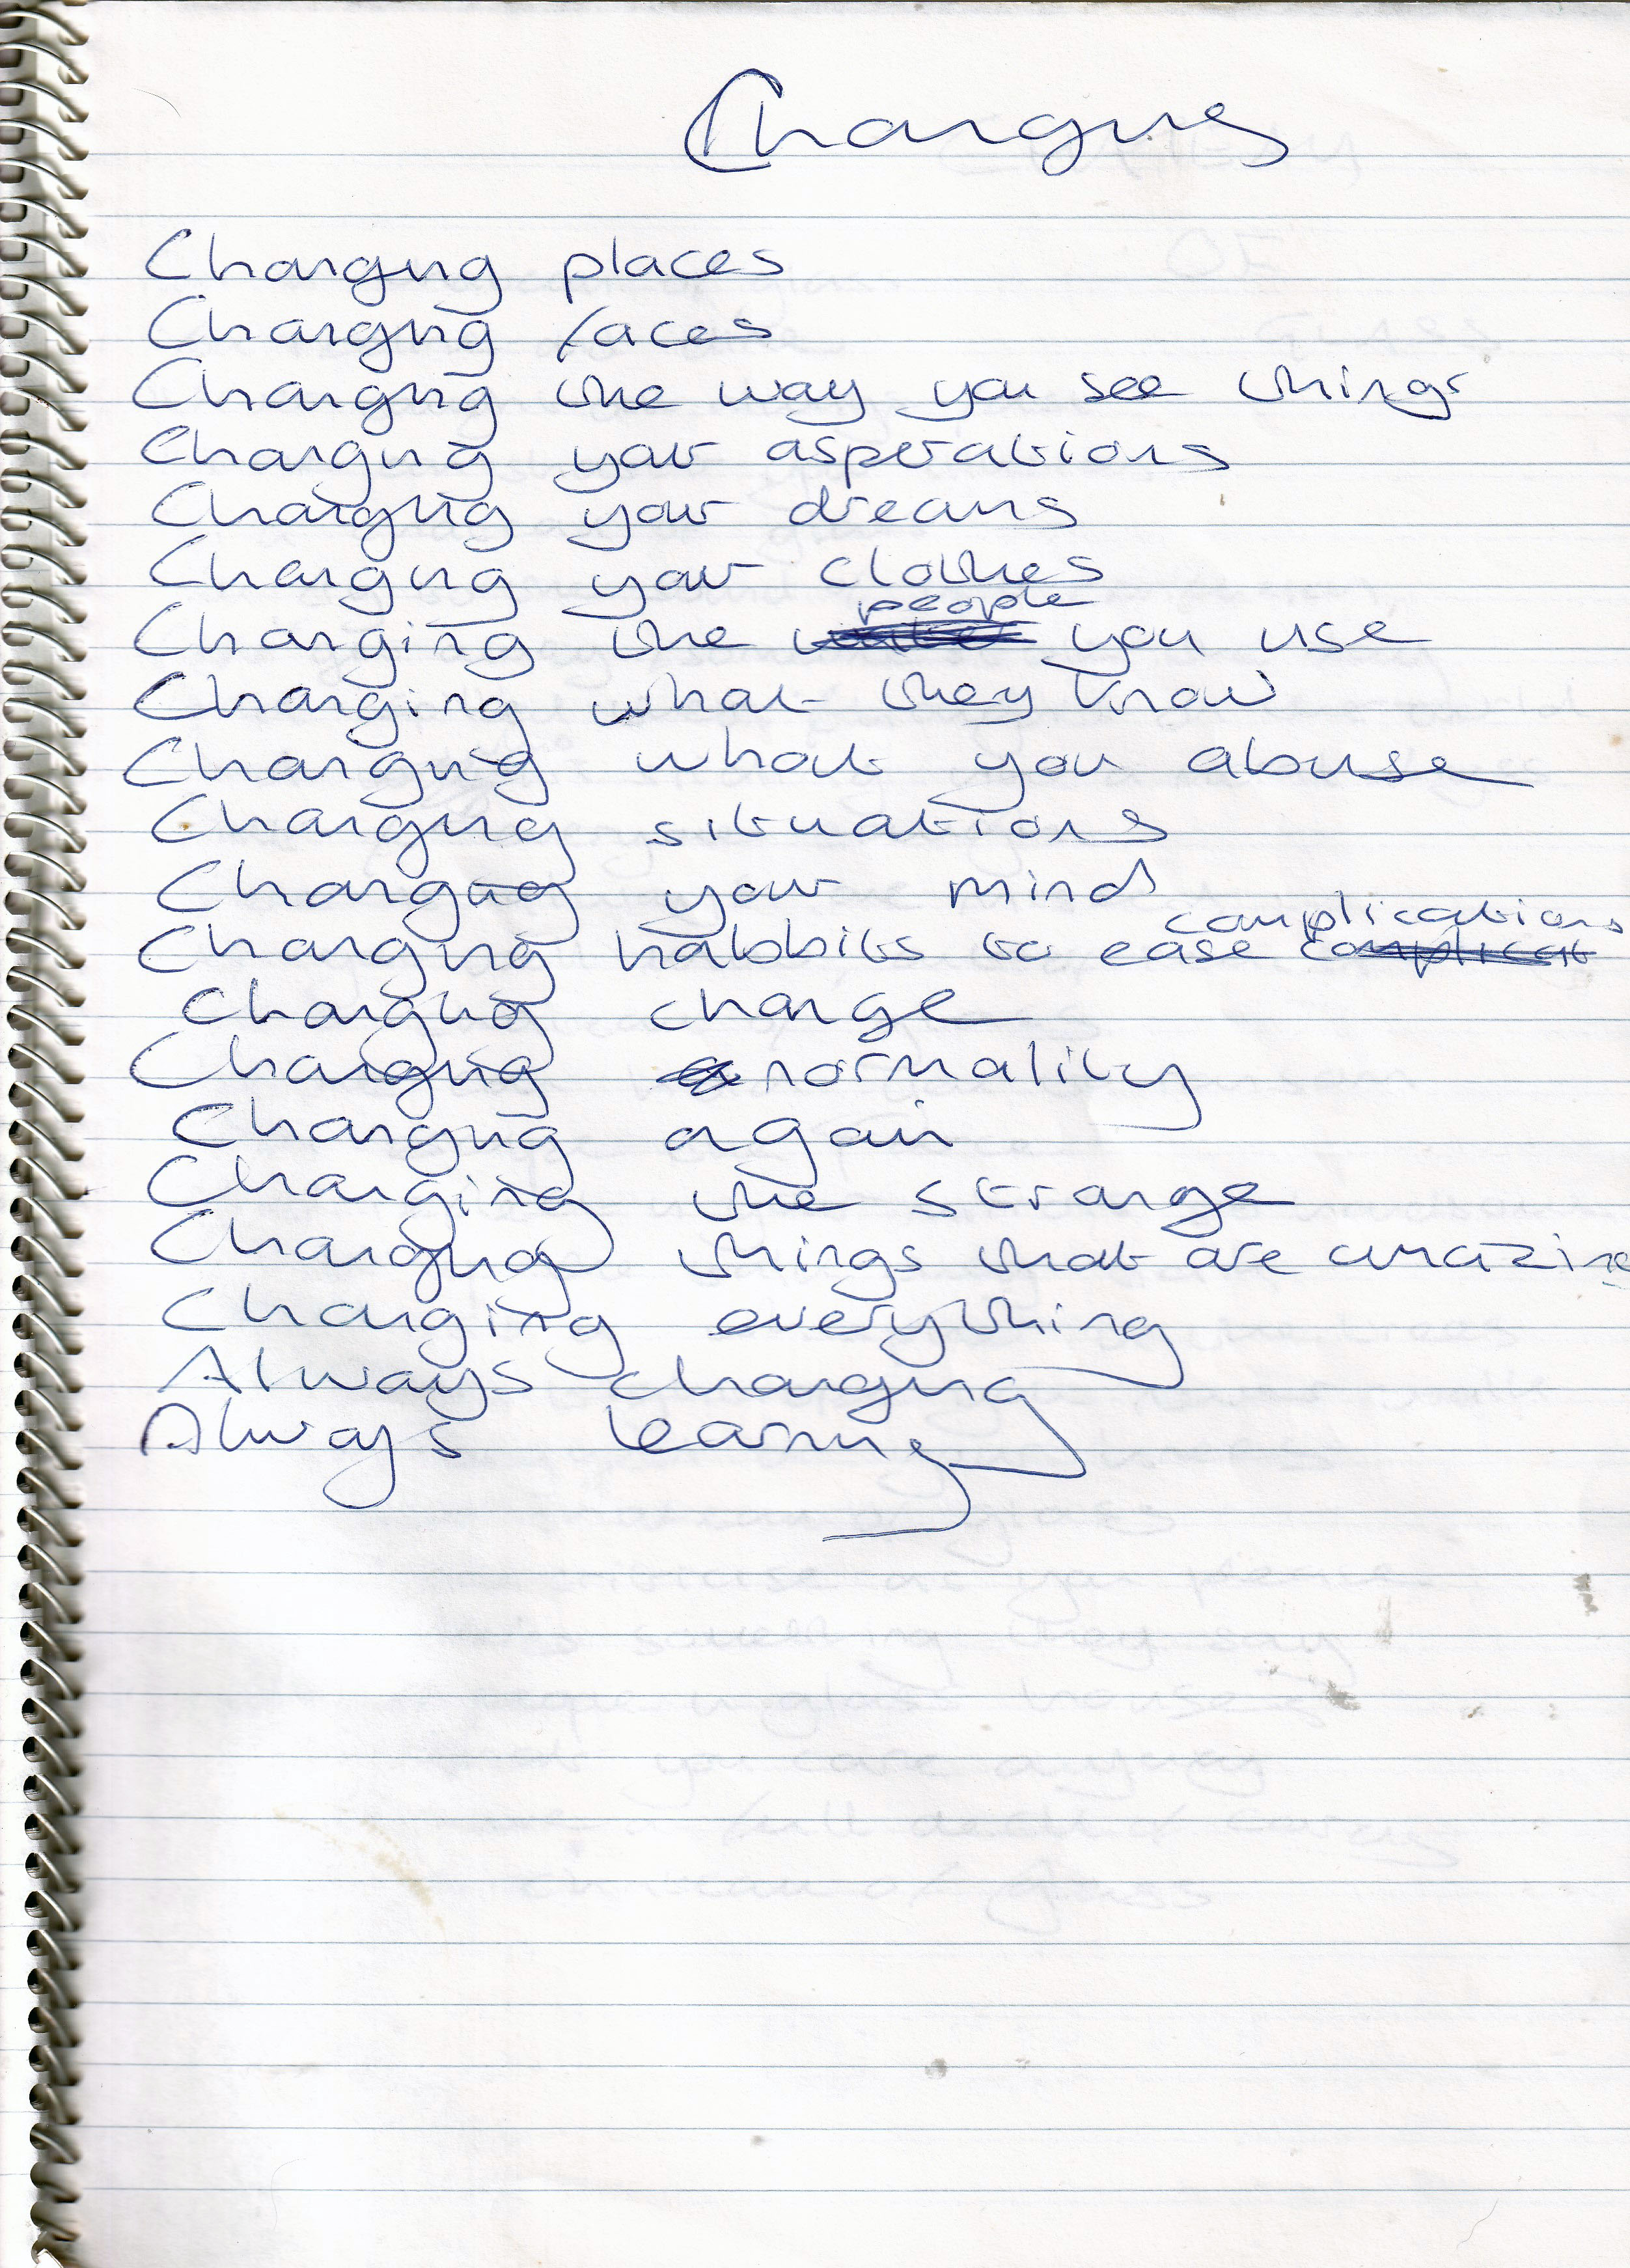 Changing
Changing places
Changing faces
Changing the way you see things
Changing your asperations
Changing your dreams
Changing your clothes
Changing the people you use
Changing what they know
Changing what you abuse
Changing situations
Changing your mind
Changing habbits to ease complications
Changing change
Changing normality
Changing again
Changing the strange
Changing things that are amazing
Changing everything
Always changing
Always learning